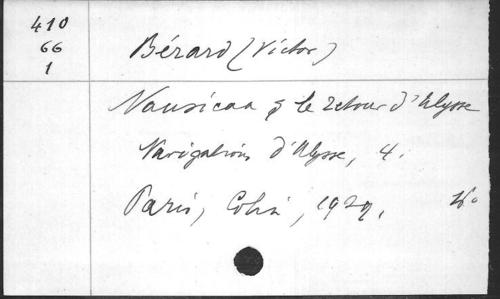 410
66
1
Bérard (Victor)
Nausicaa & le retour d'Ulysse
Navigations d'Ulysse, 4.
Paris, Colin, 1929.